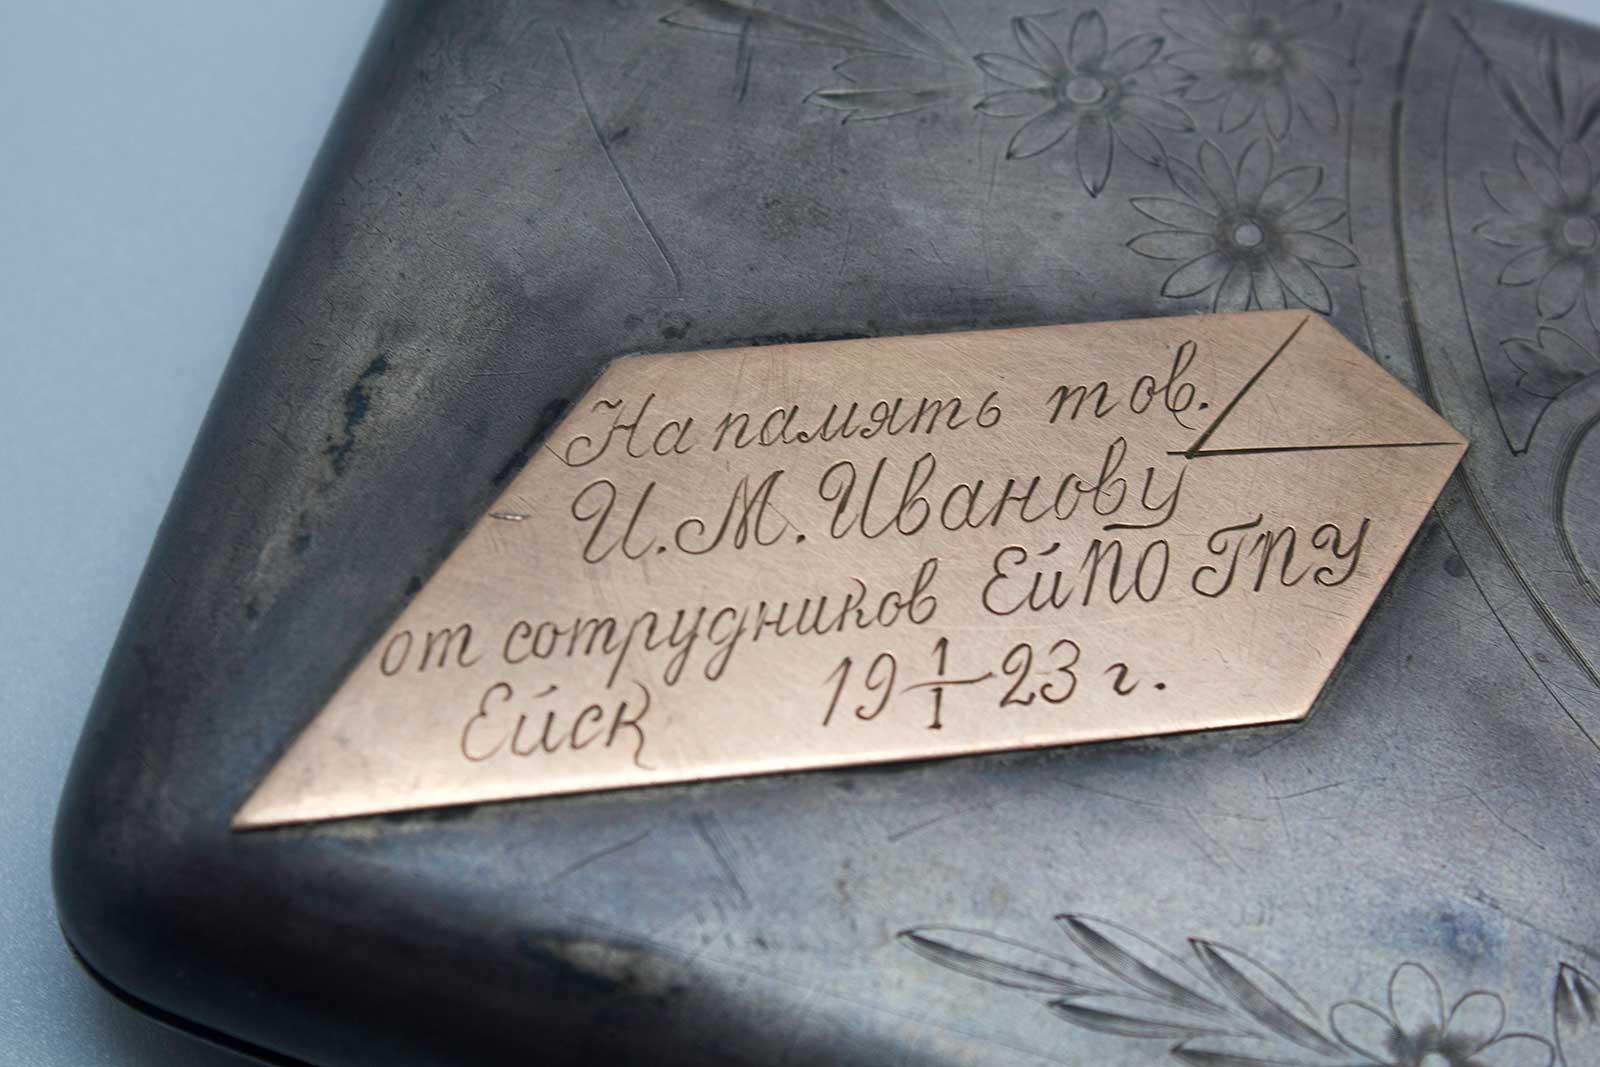 На память тов.
И. М. Иванову
от сотрудников ЕйПО ГПУ
Ейск 19 1/I 23 г.